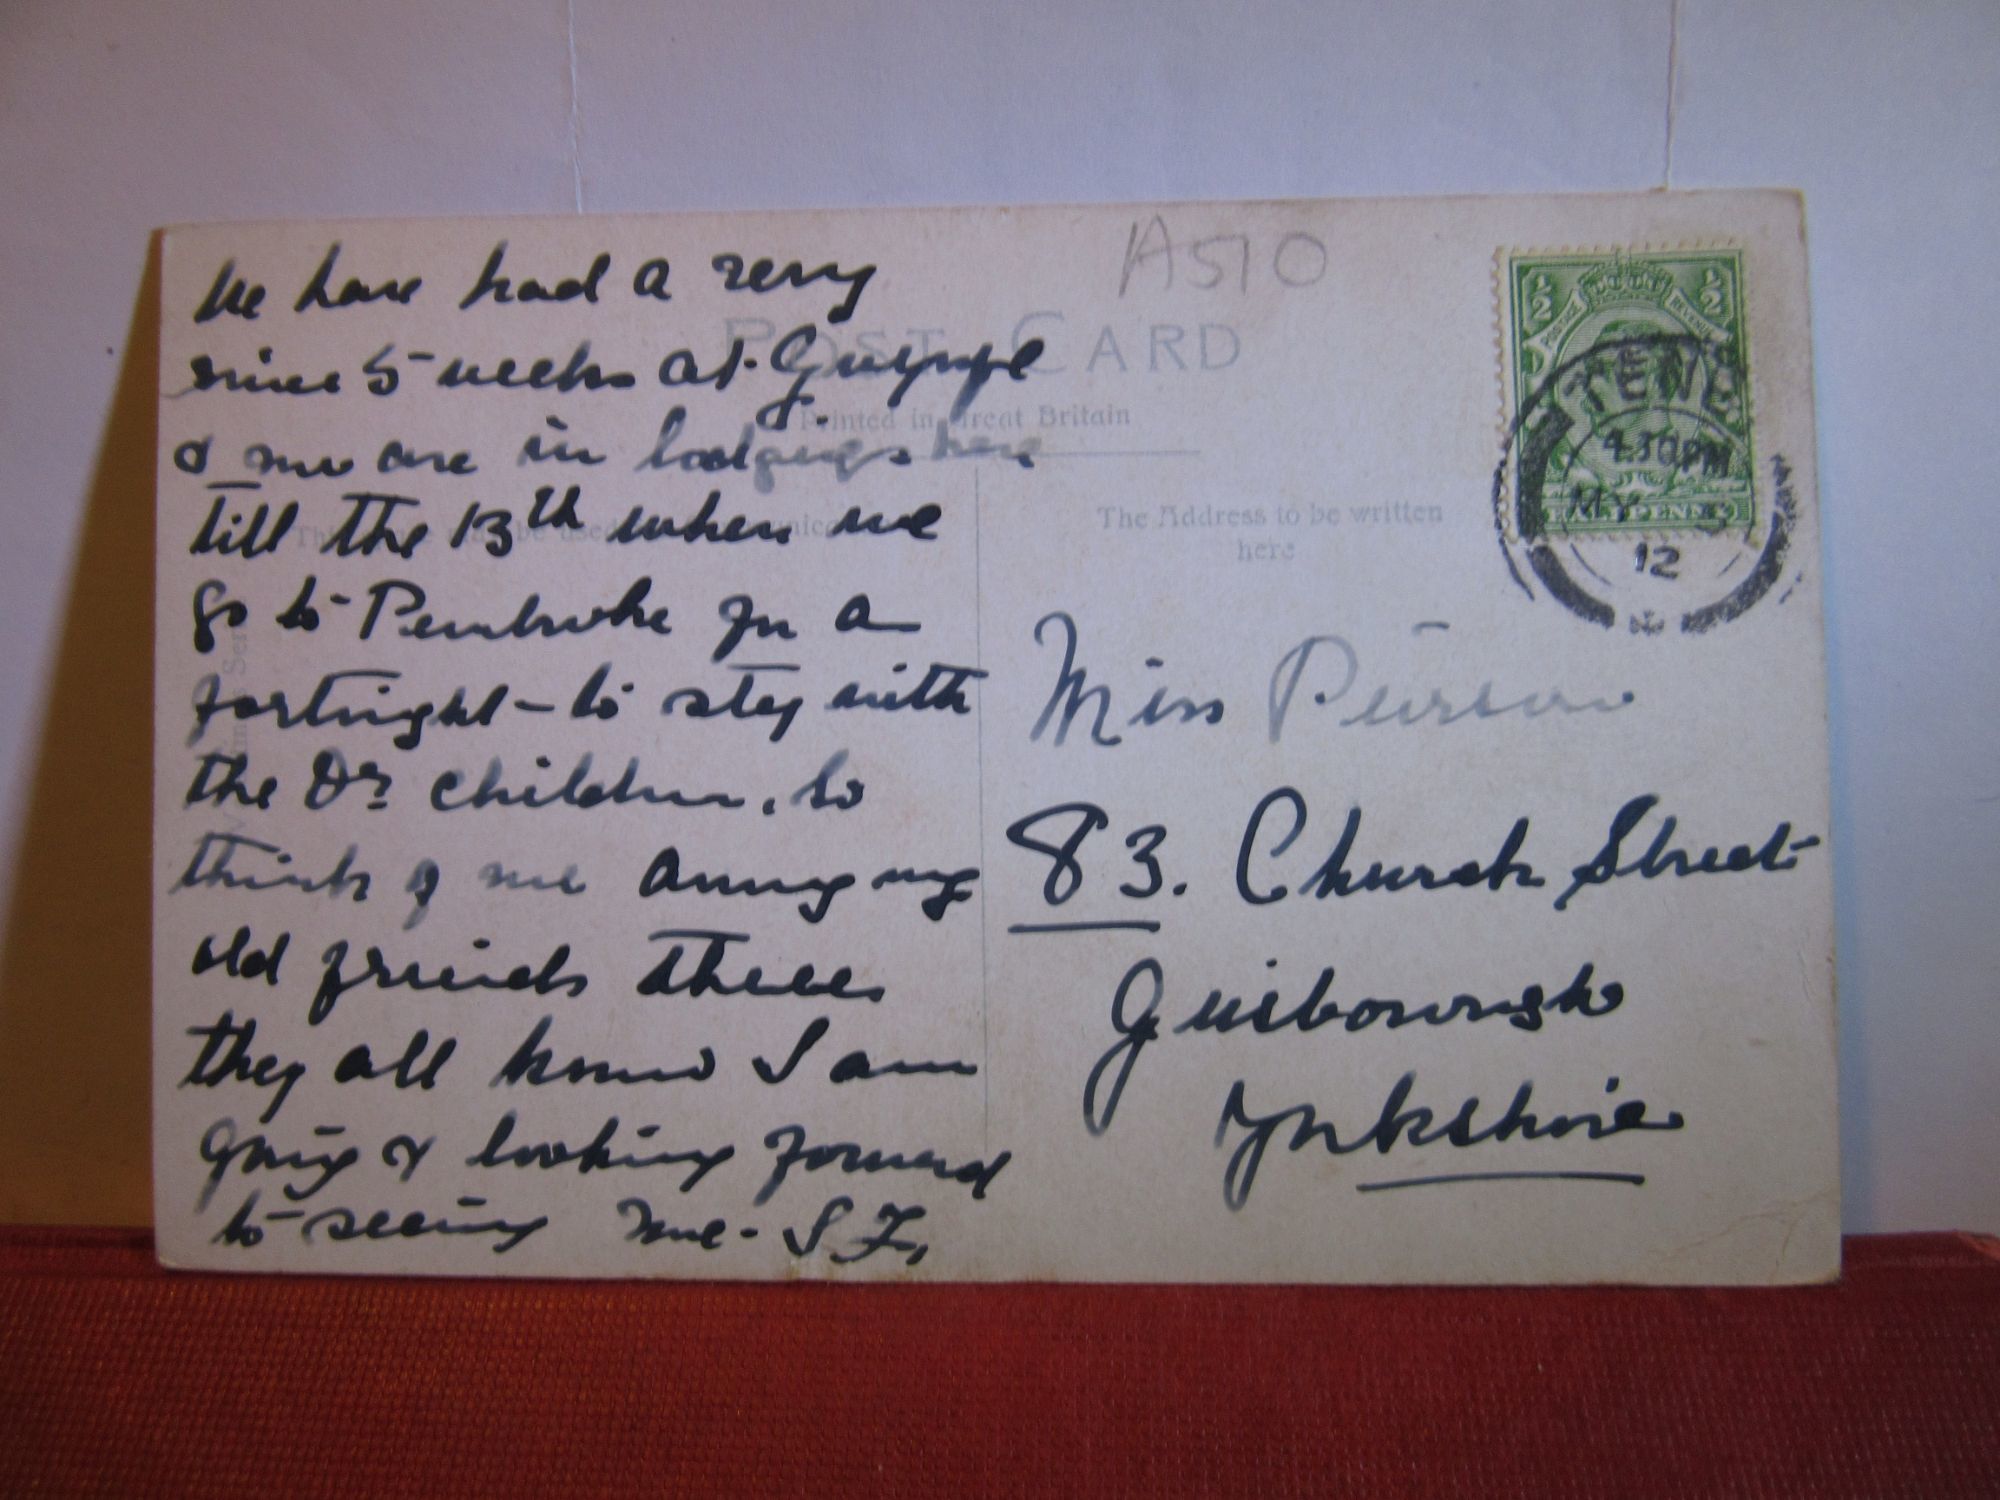 We have had a very
nice 5 weeks at
& now are in lodgings here
till the 13th when we
go to Pembroke for a
fortnight – to stay with
the Dr children. So
think of me among my
old friends there
they all know I am
going & looking forward
to seeing me - S F.
A510
POST CARD
Printed in Great Britain
The Address to be written
here
1/2 1/2
POSTAGE REVENUE
HALFPENNY
4.30PM
MY
12
Miss Pierson
83. Church Street
Guisborough
Yorkshire